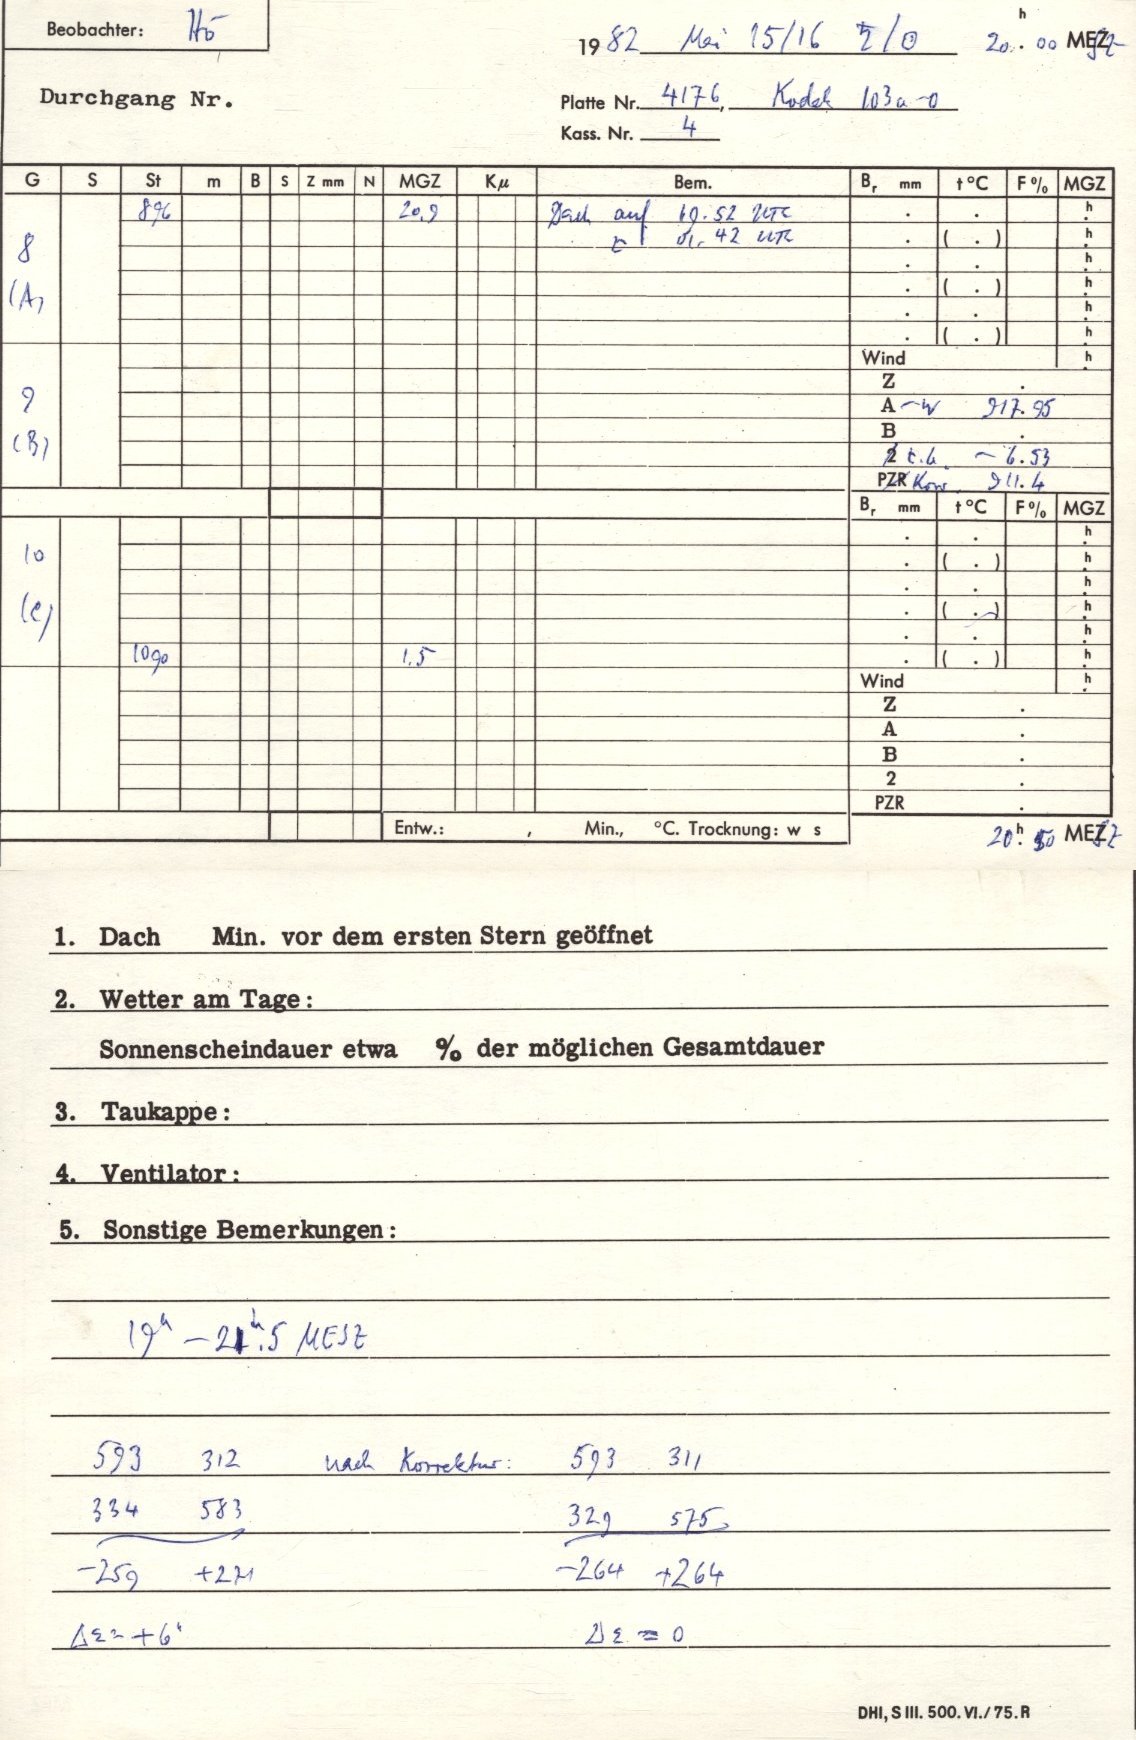 Beobachter: Hö
1982 Mai 15/16 ♄/☉ 20.h 00 MESZ
Durchgang Nr.
Platte Nr. 4176, Kodak 103a-0
Kass. Nr. 4
G S St m B S Z mm N MGZ Kμ Bem. Br mm t°C F% MGZ
896 20,9 Dach auf 19.52 UTC . . h
8 01.42 UTC . ( . ) h
. . h
(A) . ( . ) h
. . h
. ( . ) h
Wind h
Z .
9 A ~W 917.95
B .
(B) ~6.53
PZR Korr. 911.4
Br mm t°C F% MGZ
. . h
10 . ( . ) h
. . h
(C) . ( . ) h
. . h
1090 1.5 . ( . ) h
Wind h
Z .
A .
B .
2 .
PZR .
Entw.: , Min., °C. Trocknung: w s
20h. 50 MESZ
1. Dach Min. vor dem ersten Stern geöffnet
2. Wetter am Tage:
Sonnenscheindauer etwa % der möglichen Gesamtdauer
3. Taukappe:
4. Ventilator:
5. Sonstige Bemerkungen:
19h – 21h.5 MESZ
593 312 nach Korrektur: 593 311
334 583 329 575
-259 +271 -264 +264
Δε = +6" Δε = 0
DHI, S III. 500. VI./75. R